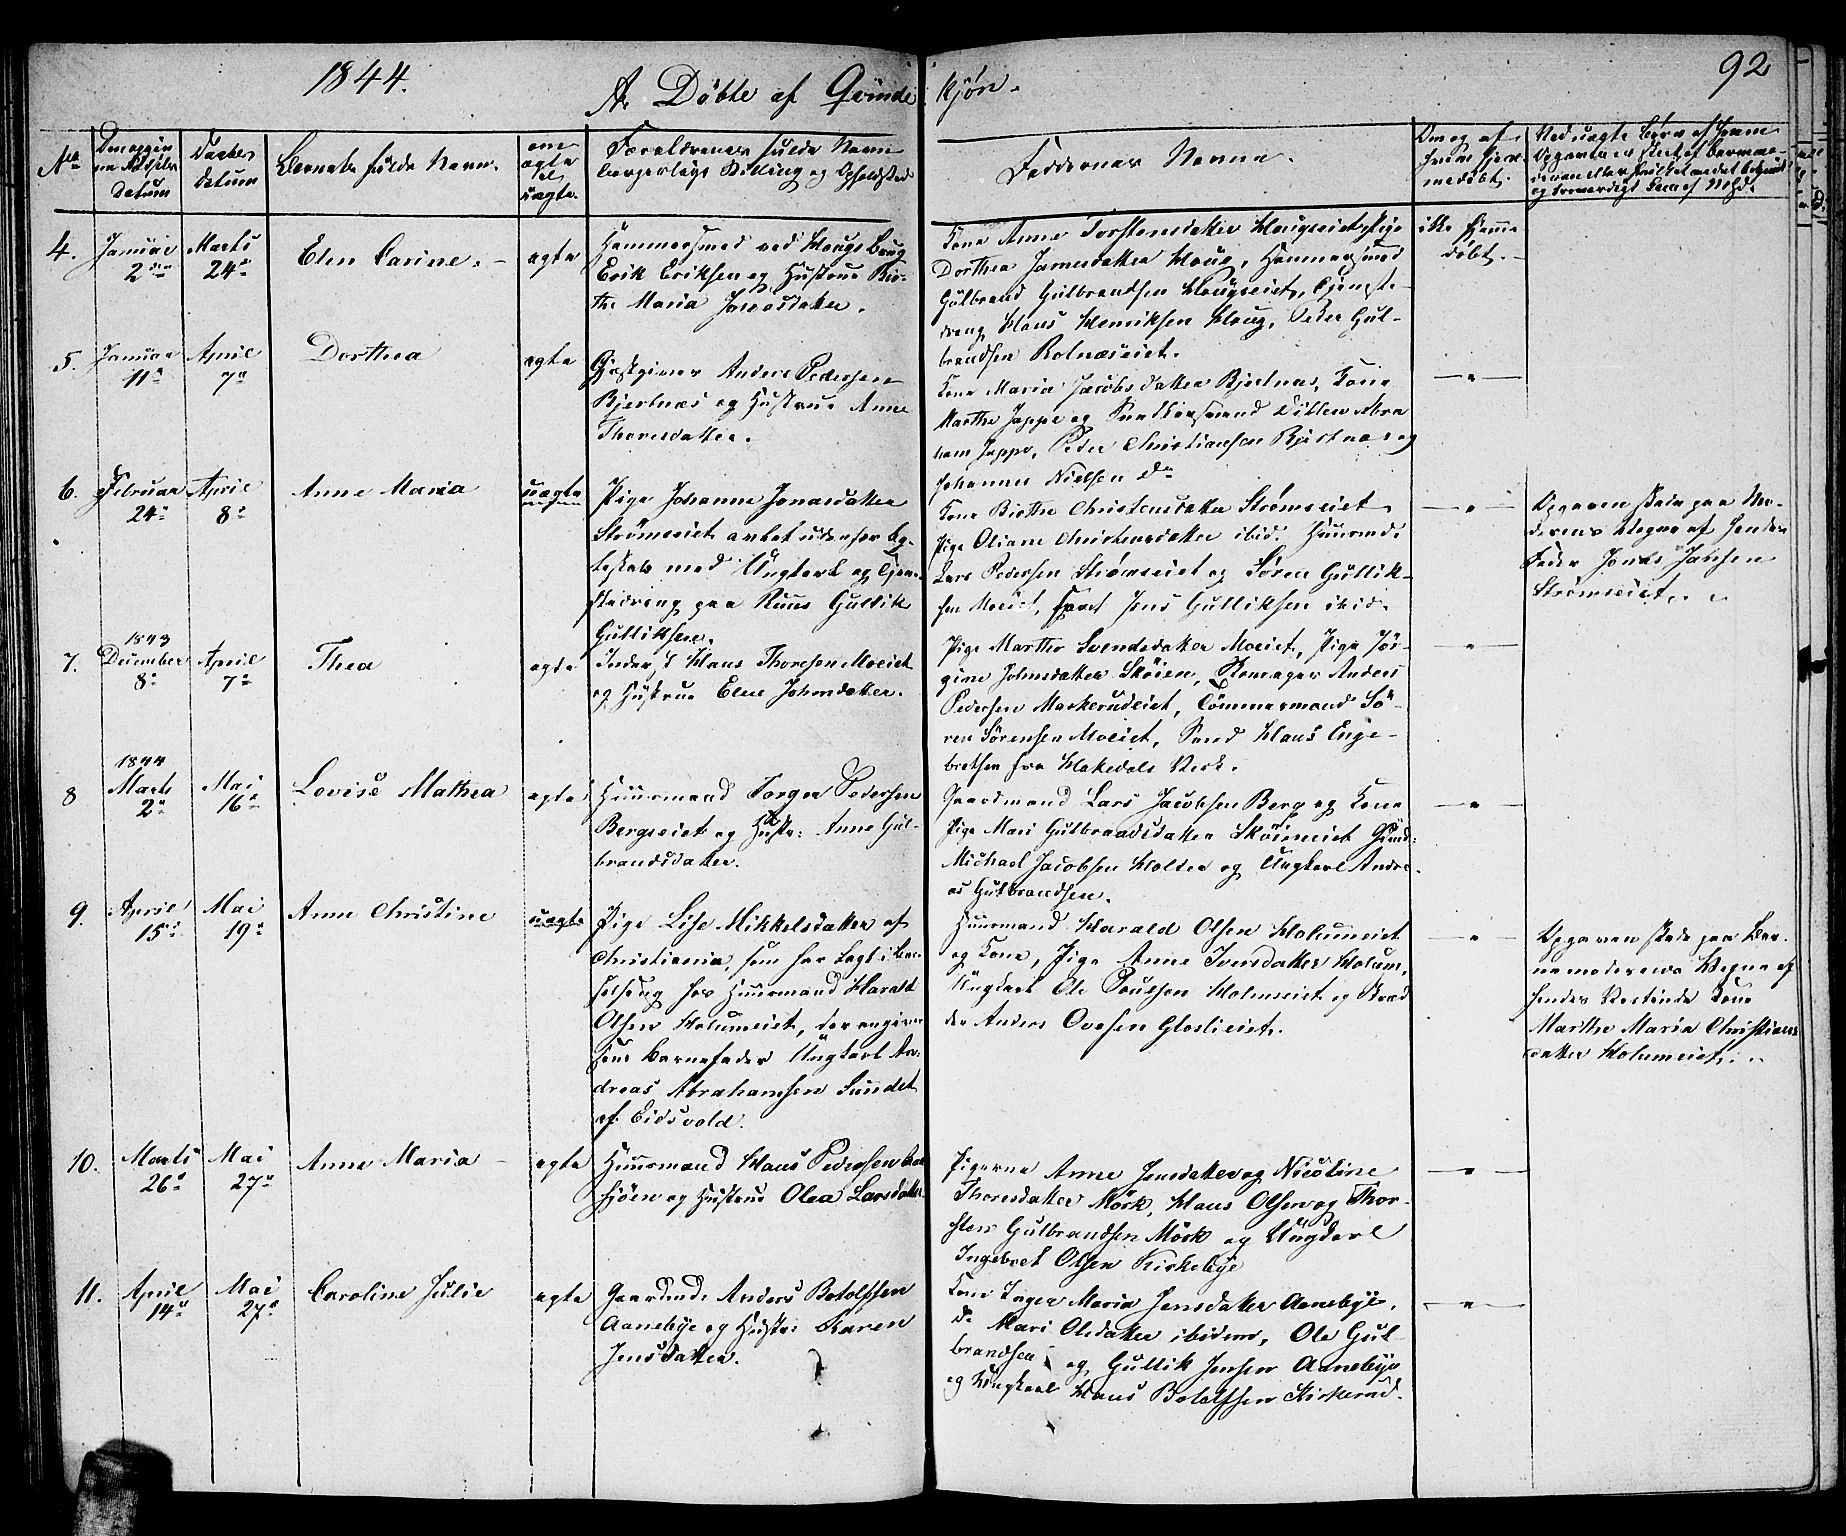 1844.
92
A. Döbte af Qvinde kjön.
No
Barnets fulde Navn.
om ægte el uægte.
Forældrenes fulde Navn
borgerlige Stilling og Opholdsted
Faddernes Navne.
4.
Januar 2
Marts 24
Elen Carine.
ægte
Hammersmed ved Hougs Brug
Erik Eriksen og Hustrue
Maria
Kone Anne Torstensdatter Hougseiet, Pige
Dorthea Houg, Hammersmed
Gulbrand Gulbrandsen Hougseiet, Tjeneste-
dreng Hans Henriksen Houg, Peder Gul-
brandsen Rotnæseiet.
ikke hjemme
döbt.
5.
Januar 11
April 7
Dorthea
ægte
Gjæstgiver Anders Pedersen
Bjertnæs og Hustrue Anne
Thoresdatter.
Kone Maria Jacobsdatter Bjertnæs, Kone
Marthe Jappe og
Jappe, Peder Christiansen Bjertnæs og
Johannes Nielsen Do
6.
Februar 24
April 8
Anne Maria
uægte
Pige Johanne Jonasdatter
Strömseiet avlet udenfor Eg-
teskab med Ungkarl og Tjene-
stedreng paa Ruus Gullik
Gulliksen.
Kone Birthe Christensdatter Strömseiet,
Pige Oliane Christensdatter ibid. Huusmd.
Lars Pedersen Strömseiet og Sören Gullik-
sen Moeiet, Jens Gulliksen ibid.
Opgaven skede paa Mo-
derens Vegne af hendes
Fader Jonas Jansen
Strömseiet.
7.
1843
December 8
April 7
Thea
ægte
Inderst Hans Thoresen Moeiet
og Hustrue Elen Johnsdatter.
Pige Marthe Svendsdatter Moeiet, Pige Jör-
gine Johnsdatter Sköien, Skomager Anders
Pedersen Maskerudeiet, Tömmermand Sö-
ren Sörensen Moeiet, Smed Hans Enge-
bretsen fra Hakedals Verk.
8
1844
Marts 2
Mai 16
Lovise Mathea
ægte
Huusmand Torger Pedersen
Bergseiet og Hustr: Anne Gul-
brandsdatter.
Gaardmand Lars Jacobsen Berg og Kone
Pige Mari Gulbrandsdatter Sköieneiet
Michael Jacobsen Holter og Ungkarl Andre-
as Gulbrandsen.
9.
April 15
Mai 19
Anne Christine
uægte
Pige Lise Mikkelsdatter af
Christiania, som har lagt i Bar-
selseng hos Huusmand Harald
Olsen Holumeiet, der angiver
som Barnefader Ungkarl An-
dreas Abrahamsen Sundet
af Eidsvold.
Huusmand Harald Olsen Holumeiet
og Kone, Pige Anne Iversdatter Holum,
Ungkarl Ole Poulsen Holumeiet og
Anders Ovesen Gloslieiet.
Opgaven skede paa Bar-
nemoderens Vegne af
hendes Kone
Marthe Maria Christians
datter Holumeiet.
10.
Marts 26
Mai 27
Anne Maria
ægte
Huusmand Hans Pedersen
sjöen og Hustrue Olea Larsdatter
Pigerne Anne Jensdatter og Nicoline
Thoresdatter Mörk, Hans Olsen og Thor-
sten Gulbrandsen Mörk og Ungkarl
Ingebret Olsen Kirkebye
11.
April 14
Mai 27
Caroline Julie
ægte
Gaardmd. Anders Botolfsen
Aanebye og Hustr: Karen
Jensdatter.
Kone Inger Maria Jensdatter Aanebye,
Do Mari Olsdatter ibidem, Ole Gul-
brandsen og Gullik Jensen Aanebye
og Ungkarl Hans Botolfsen Kirkerud.